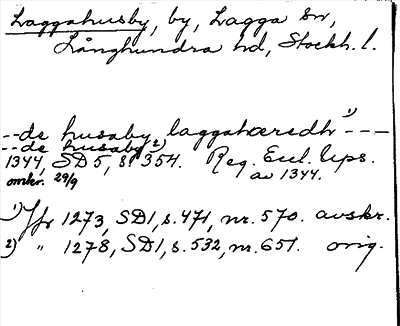 Laggahusby, by, Lagga sn,
Långhundra hd, Stockh. l.
--de husaby laggahæredh 1) ---
--de husaby 2)
1344, SD 5, s. 354. Reg. Eccl. Ups.
omkr. 29/9 av 1344.
1) Jfr 1273, SD1, s. 471, nr. 570. avskr.
2) " 1278, SD1, s. 532, nr. 651. orig.